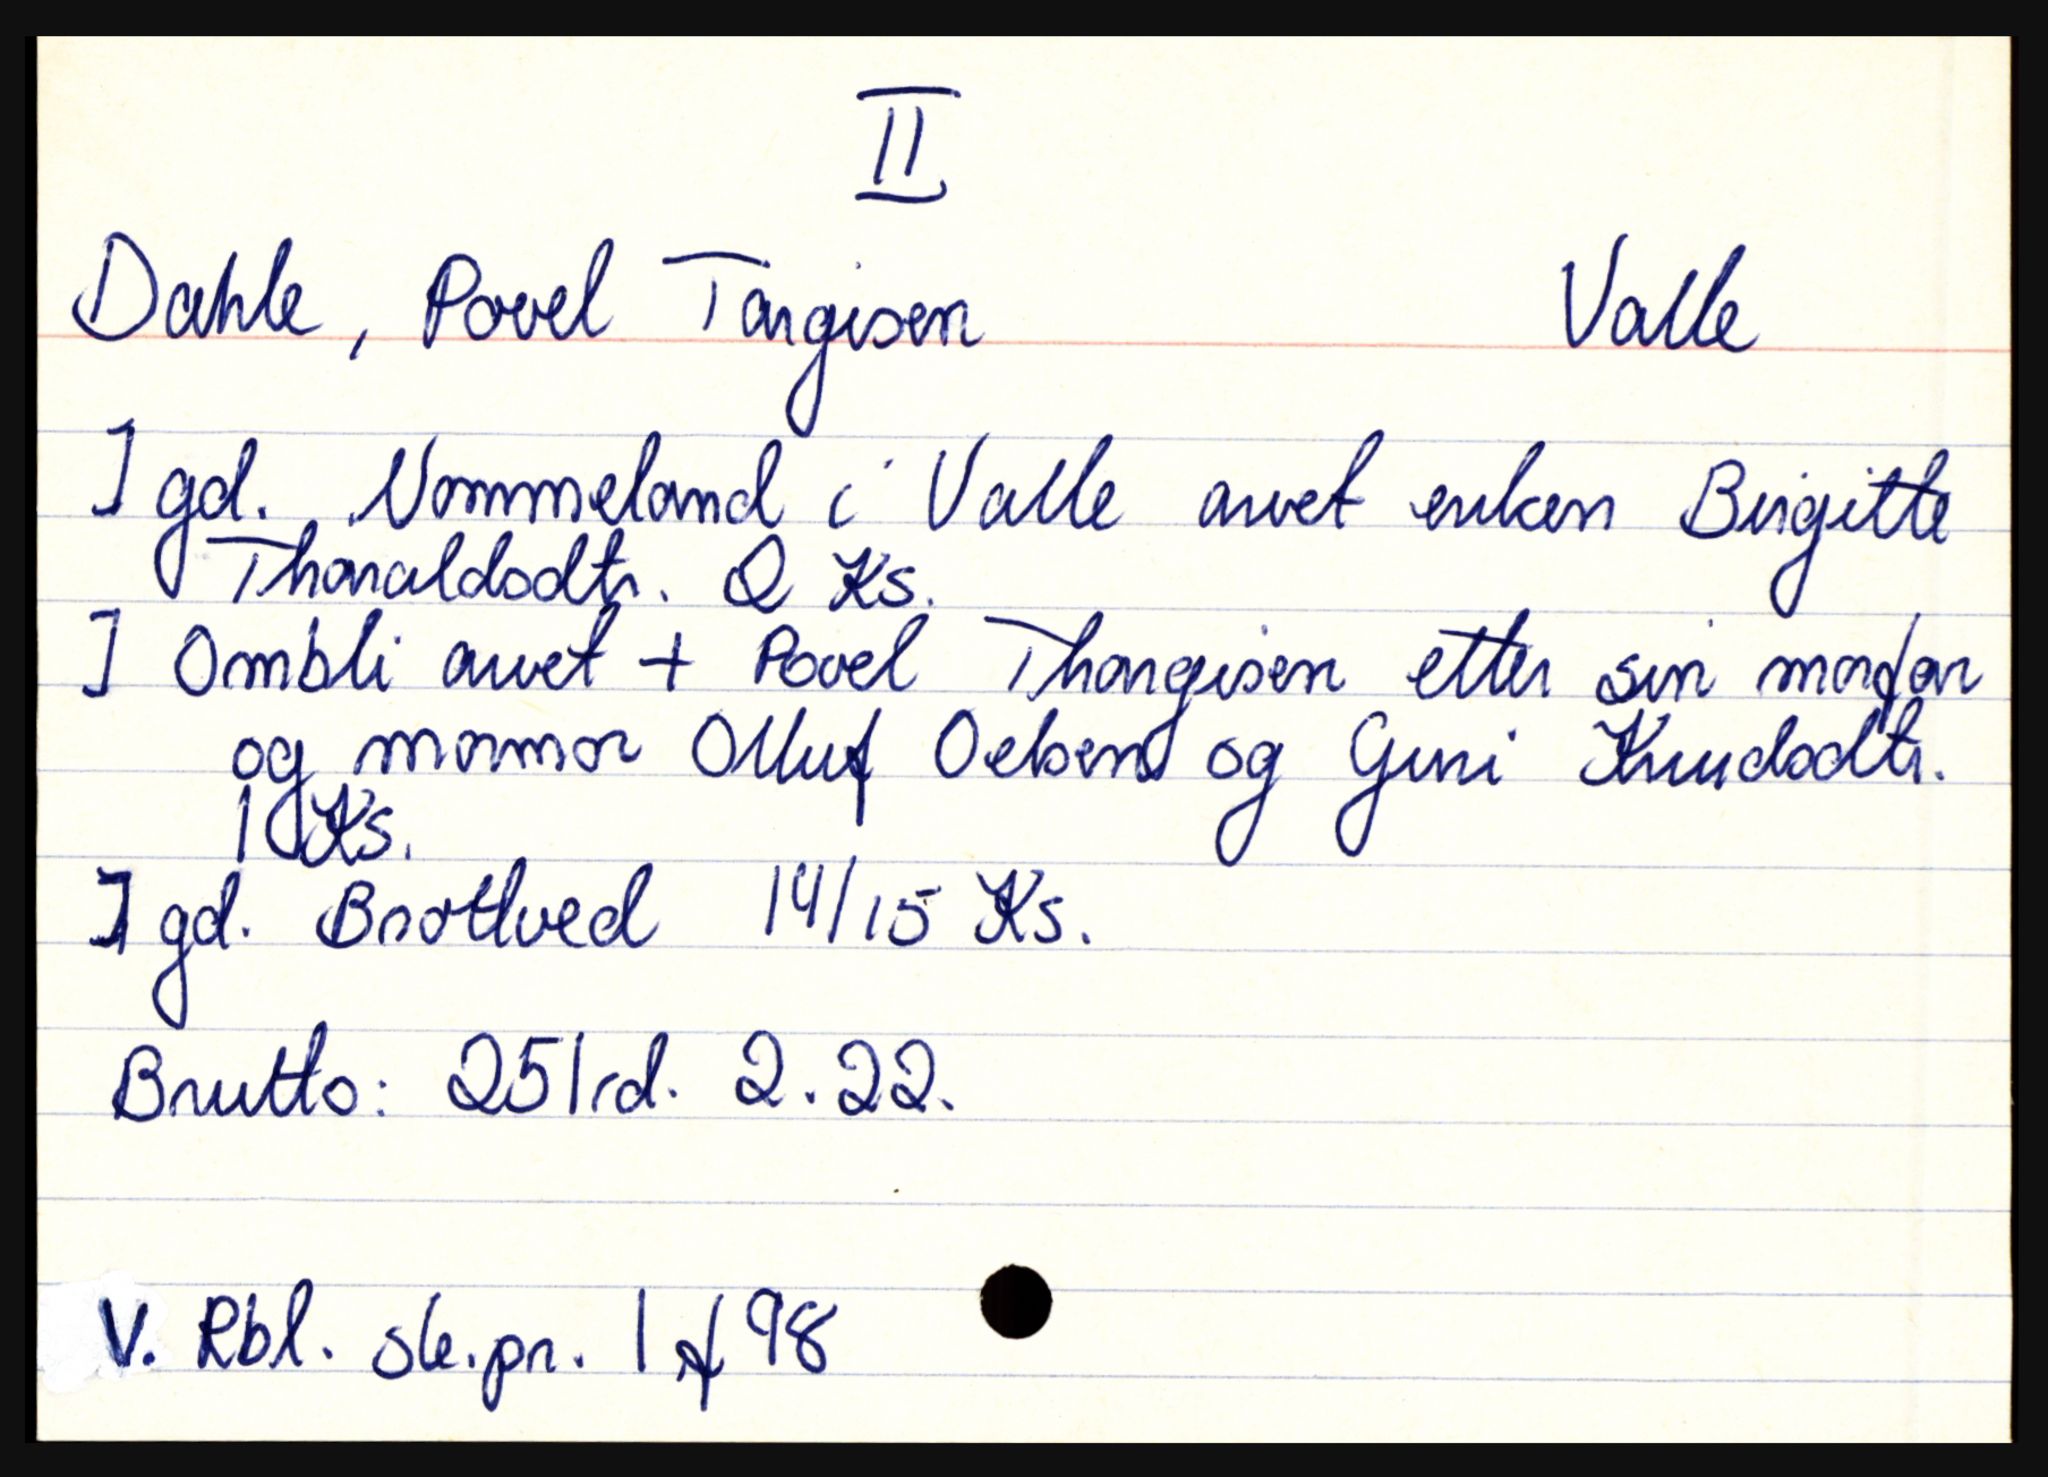 II
Dahle, Povel Targisen Valle
I gd. Nommeland i Valle arvet enken Birgitte
Tharaldsdtr. 2 Ks.
I Ombli arvet + Povel Thargisen etter sin morfar
og mormor Olluf Oelsen og Guni Knudsdtr.
1 Ks.
I gd. Brottved 14/15 Ks.
Brutto: 251rd. 2.22.
V. Rbl. sk.pr. 1 f 98